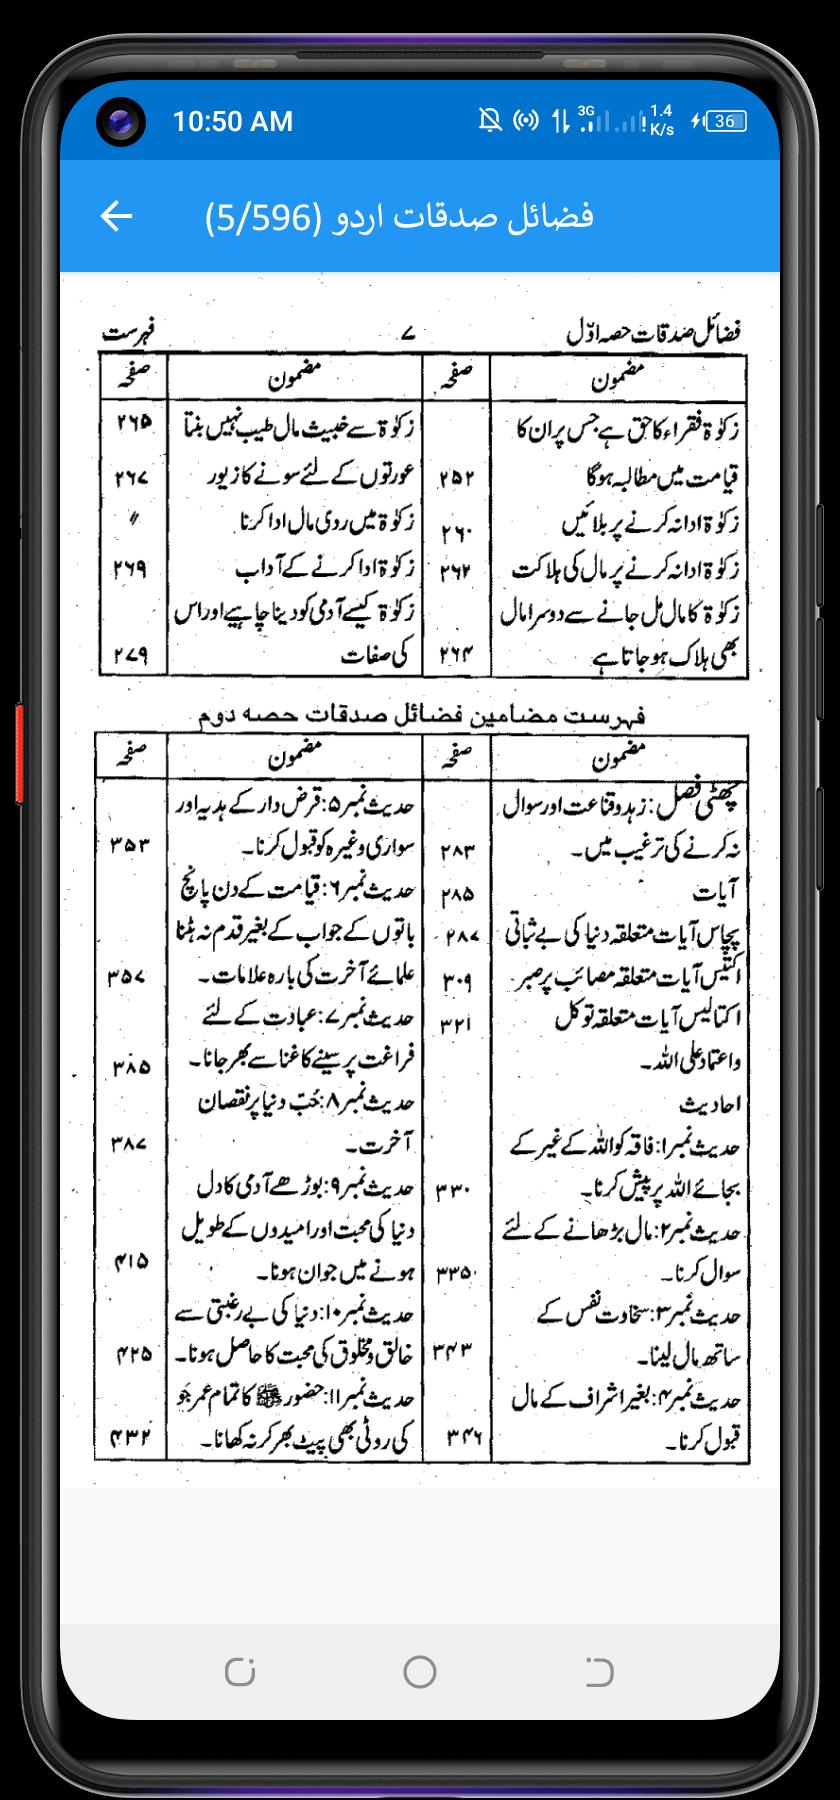 10:50 AM
3G
1.4
K/s
36
فضائل صدقات اردو (5/596)
فضائل صدقات حصہ اوّل
۷
فہرست
مضمون
صفحہ
مضمون
صفحہ
زکوٰۃ فقراء کا حق ہے جس پر ان کا
قیامت میں مطالبہ ہوگا ۲۵۲
زکوٰۃ ادا نہ کرنے پر بلائیں ۲۶۰
زکوٰۃ ادا نہ کرنے پر مال کی ہلاکت ۲۶۲
زکوٰۃ کا مال مل جانے سے دوسرا مال
بھی ہلاک ہوجاتا ہے ۲۶۴
زکوٰۃ سے خبیث مال طیب نہیں بنتا ۲۶۵
عورتوں کے لئے سونے کا زیور ۲۶۷
زکوٰۃ میں ردی مال ادا کرنا 〃
زکوٰۃ ادا کرنے کے آداب ۲۶۹
زکوٰۃ کیسے آدمی کو دینا چاہیے اور اس
کی صفات ۲۷۹
فہرست مضامین فضائل صدقات حصہ دوم
مضمون
صفحہ
مضمون
صفحہ
چھٹی فصل: زہد و قناعت اور سوال
نہ کرنے کی ترغیب میں۔ ۲۸۳
آیات ۲۸۵
پچاس آیات متعلقہ دنیا کی بے ثباتی ۲۸۷
اکتیس آیات متعلقہ مصائب پر صبر ۳۰۹
اکتالیس آیات متعلقہ توکل ۳۲۱
واعتماد علی اللہ۔
احادیث
حدیث نمبر۱: فاقہ کو اللہ کے غیر کے
بجائے اللہ پر پیش کرنا۔ ۳۳۰
حدیث نمبر۲: مال بڑھانے کے لئے
سوال کرنا۔ ۳۳۵
حدیث نمبر۳: سخاوت نفس کے
ساتھ مال لینا۔ ۳۴۳
حدیث نمبر۴: بغیر اشراف کے مال
قبول کرنا۔ ۳۴۶
حدیث نمبر۵: قرض دار کے ہدیہ اور
سواری وغیرہ کو قبول کرنا۔ ۳۵۳
حدیث نمبر۶: قیامت کے دن پانچ
باتوں کے جواب کے بغیر قدم نہ ہٹنا
علمائے آخرت کی بارہ علامات۔ ۳۵۷
حدیث نمبر۷: عبادت کے لئے
فراغت پر سینے کا غنا سے بھر جانا۔ ۳۸۵
حدیث نمبر۸: حُبّ دنیا پر نقصان
آخرت۔ ۳۸۷
حدیث نمبر۹: بوڑھے آدمی کا دل
دنیا کی محبت اور امیدوں کے طویل
ہونے میں جوان ہونا۔ ۴۱۵
حدیث نمبر۱۰: دنیا کی بے رغبتی سے
خالق و مخلوق کی محبت کا حاصل ہونا۔ ۴۲۵
حدیث نمبر۱۱: حضور ﷺ کا تمام عمر جو
کی روٹی بھی پیٹ بھر کر نہ کھانا۔ ۴۳۲